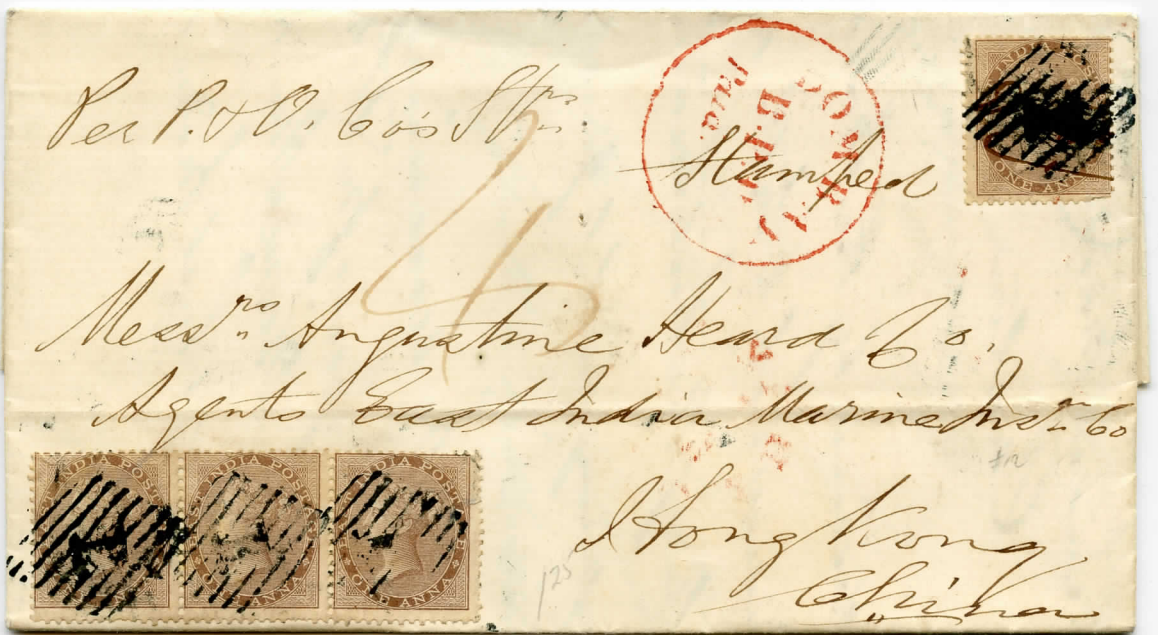 Per P. & O. Co's Strs
Stamped
BOMBAY
ONE ANNA
Messrs. Augustine Heard Co.
Agents East India Marine Insr. Co
Hong Kong
China
EAST INDIA POSTAGE
ONE ANNA
INDIA POSTAGE
ONE ANNA
INDIA POSTAGE
ONE ANNA
125